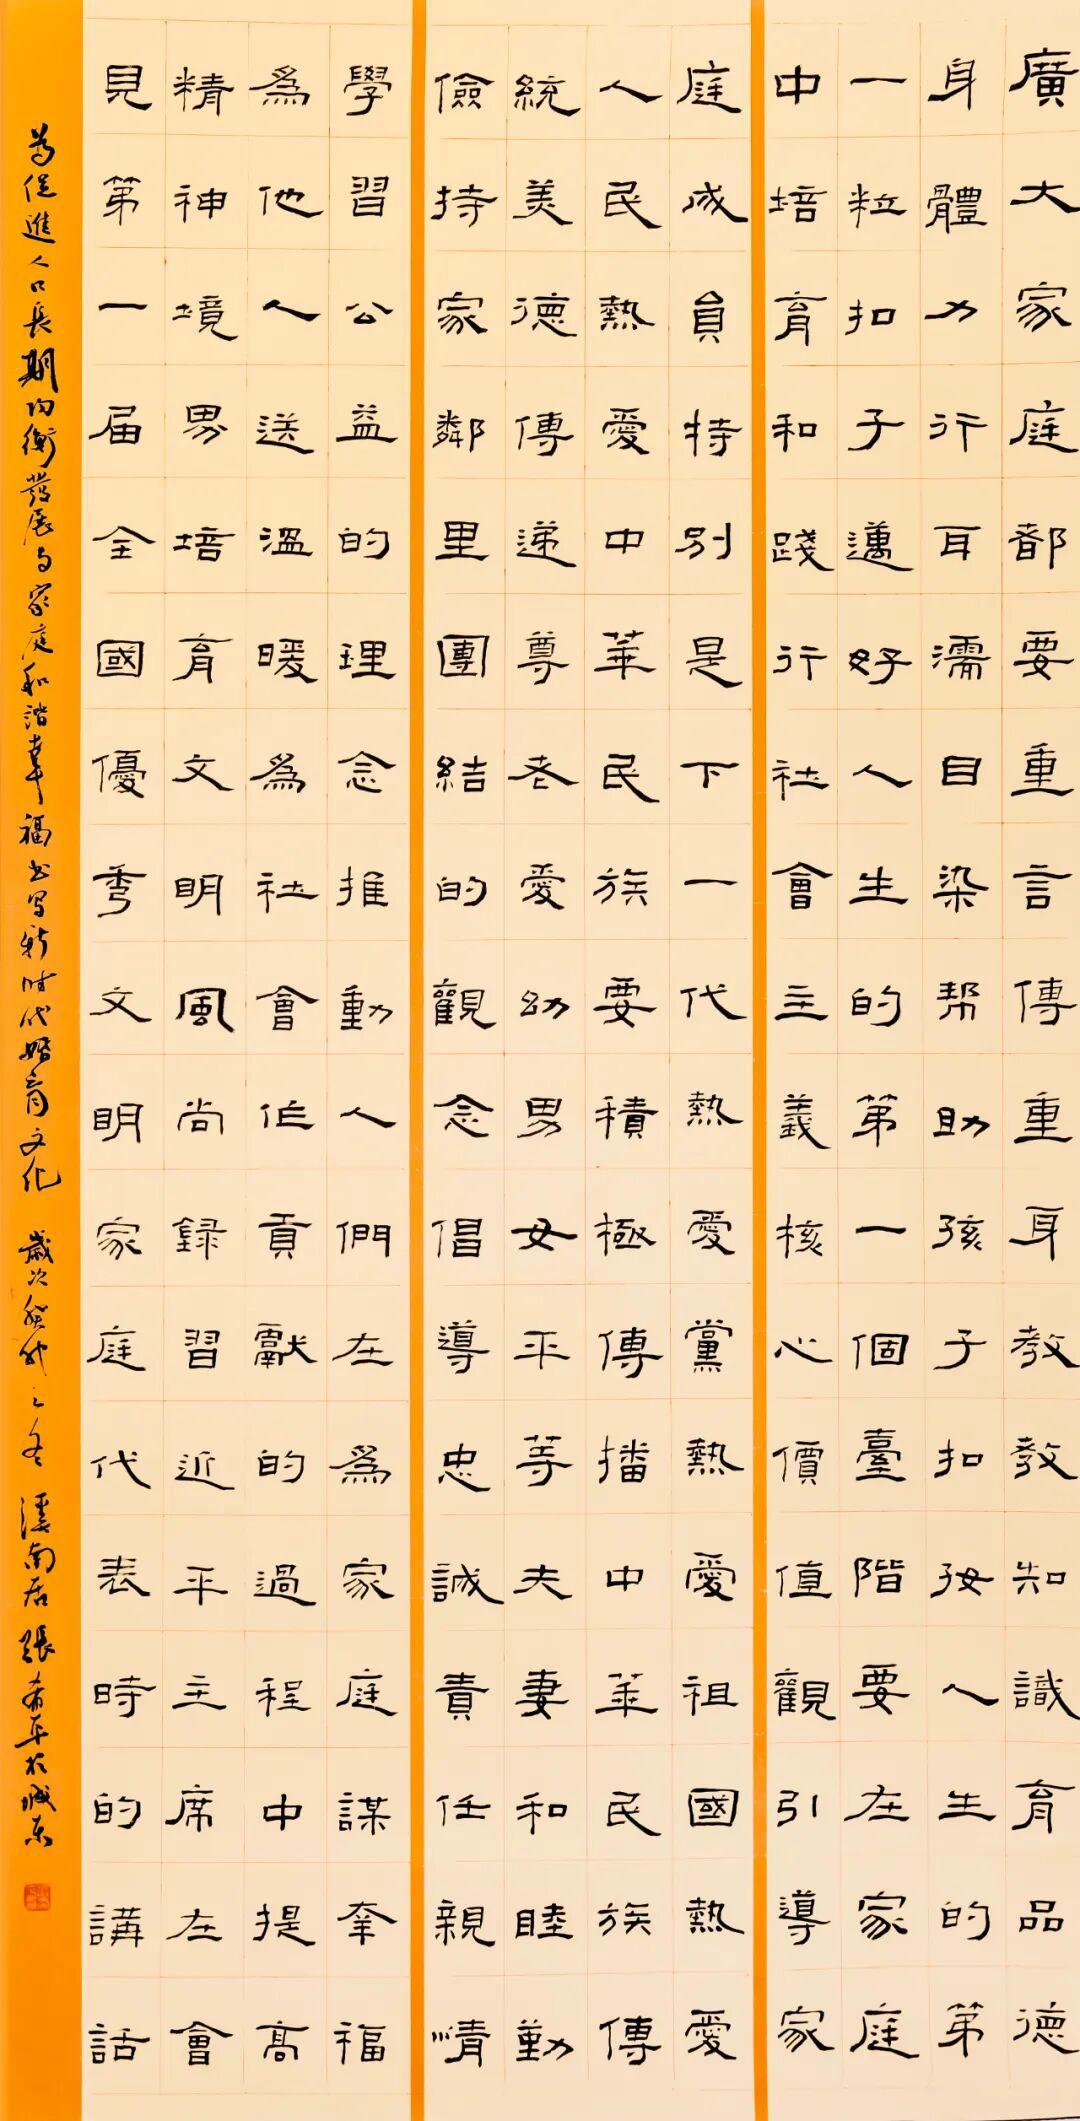 廣大家庭都要重言傳重身教教知識育品德
身體力行耳濡目染帮助孩子扣好人生的第
一粒扣子邁好人生的第一個臺階要在家庭
中培育和踐行社會主義核心價值觀引導家
庭成員特别是下一代熱愛黨熱愛祖國熱愛
人民熱愛中華民族要積極傳播中華民族傳
統美德傳遞尊老愛幼男女平等夫妻和睦勤
儉持家鄰里團結的觀念倡導忠誠責任親情
學習公益的理念推動人們在爲家庭謀幸福
爲他人送溫暖爲社會作貢獻的過程中提高
精神境界培育文明風尚録習近平主席在會
見第一届全國優秀文明家庭代表時的講話
為促進人口長期均衡發展与家庭和諧幸福书写新时代婚育文化 歲次癸卯之冬 溪南居張希平於城东